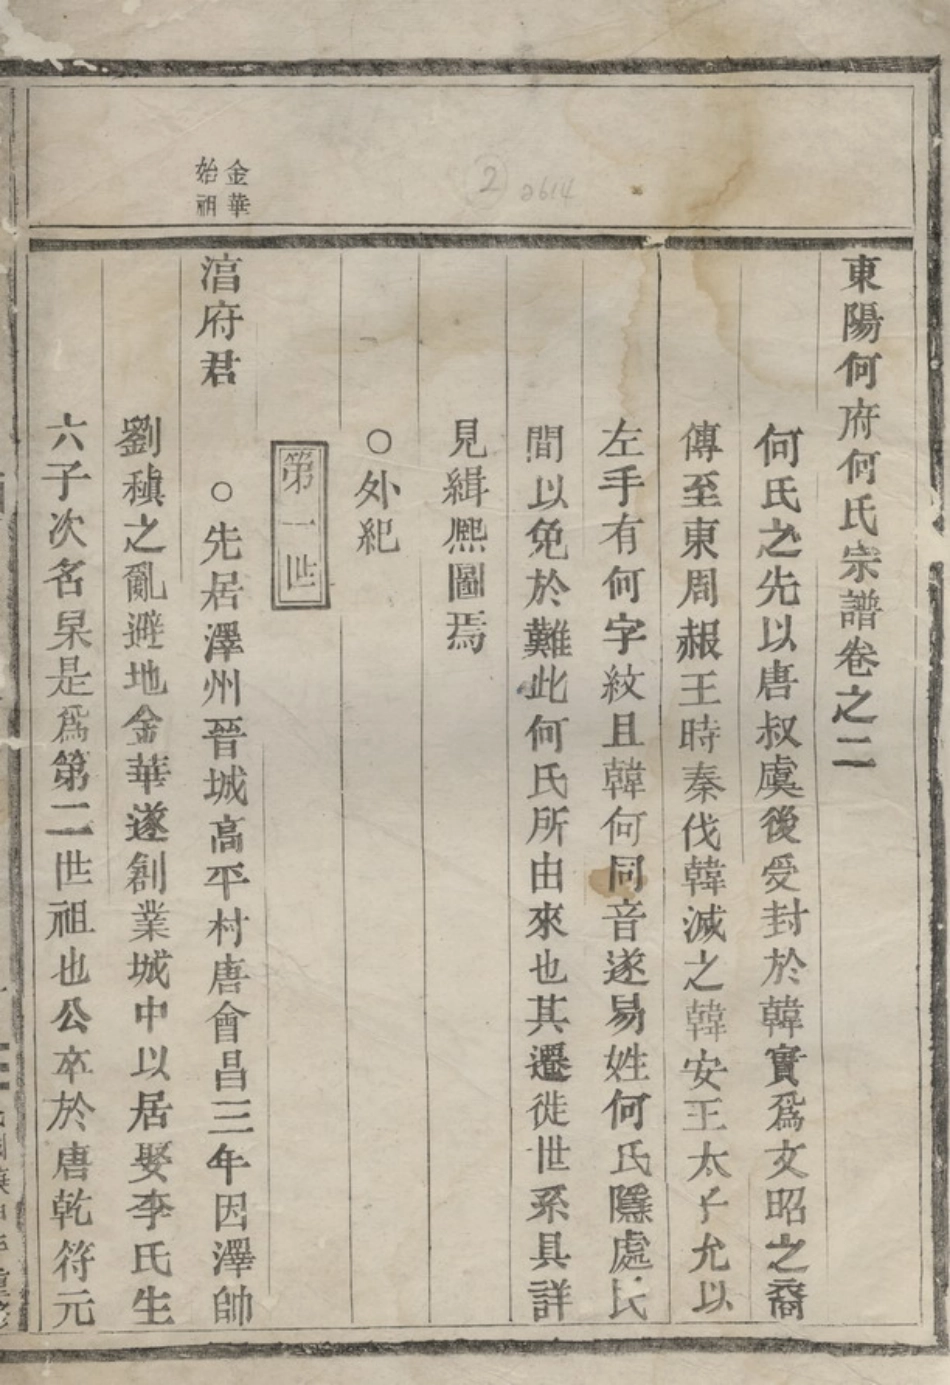 東陽何府何氏宗譜卷之二
何氏之先以唐叔虞後受封於韓實爲文昭之裔
傳至東周赧王時秦伐韓滅之韓安王太子允以
左手有何字紋且韓何同音遂易姓何氏隱處民
間以免於難此何氏所由來也其遷徙世系具詳
見緝熈圖焉
○外紀
第一世
金華
始祖
㴠府君
○先居澤州晉城高平村唐會昌三年因澤帥
劉稹之亂避地金華遂創業城中以居娶李氏生
六子次名杲是爲第二世祖也公卒於唐乾符元
2
2614